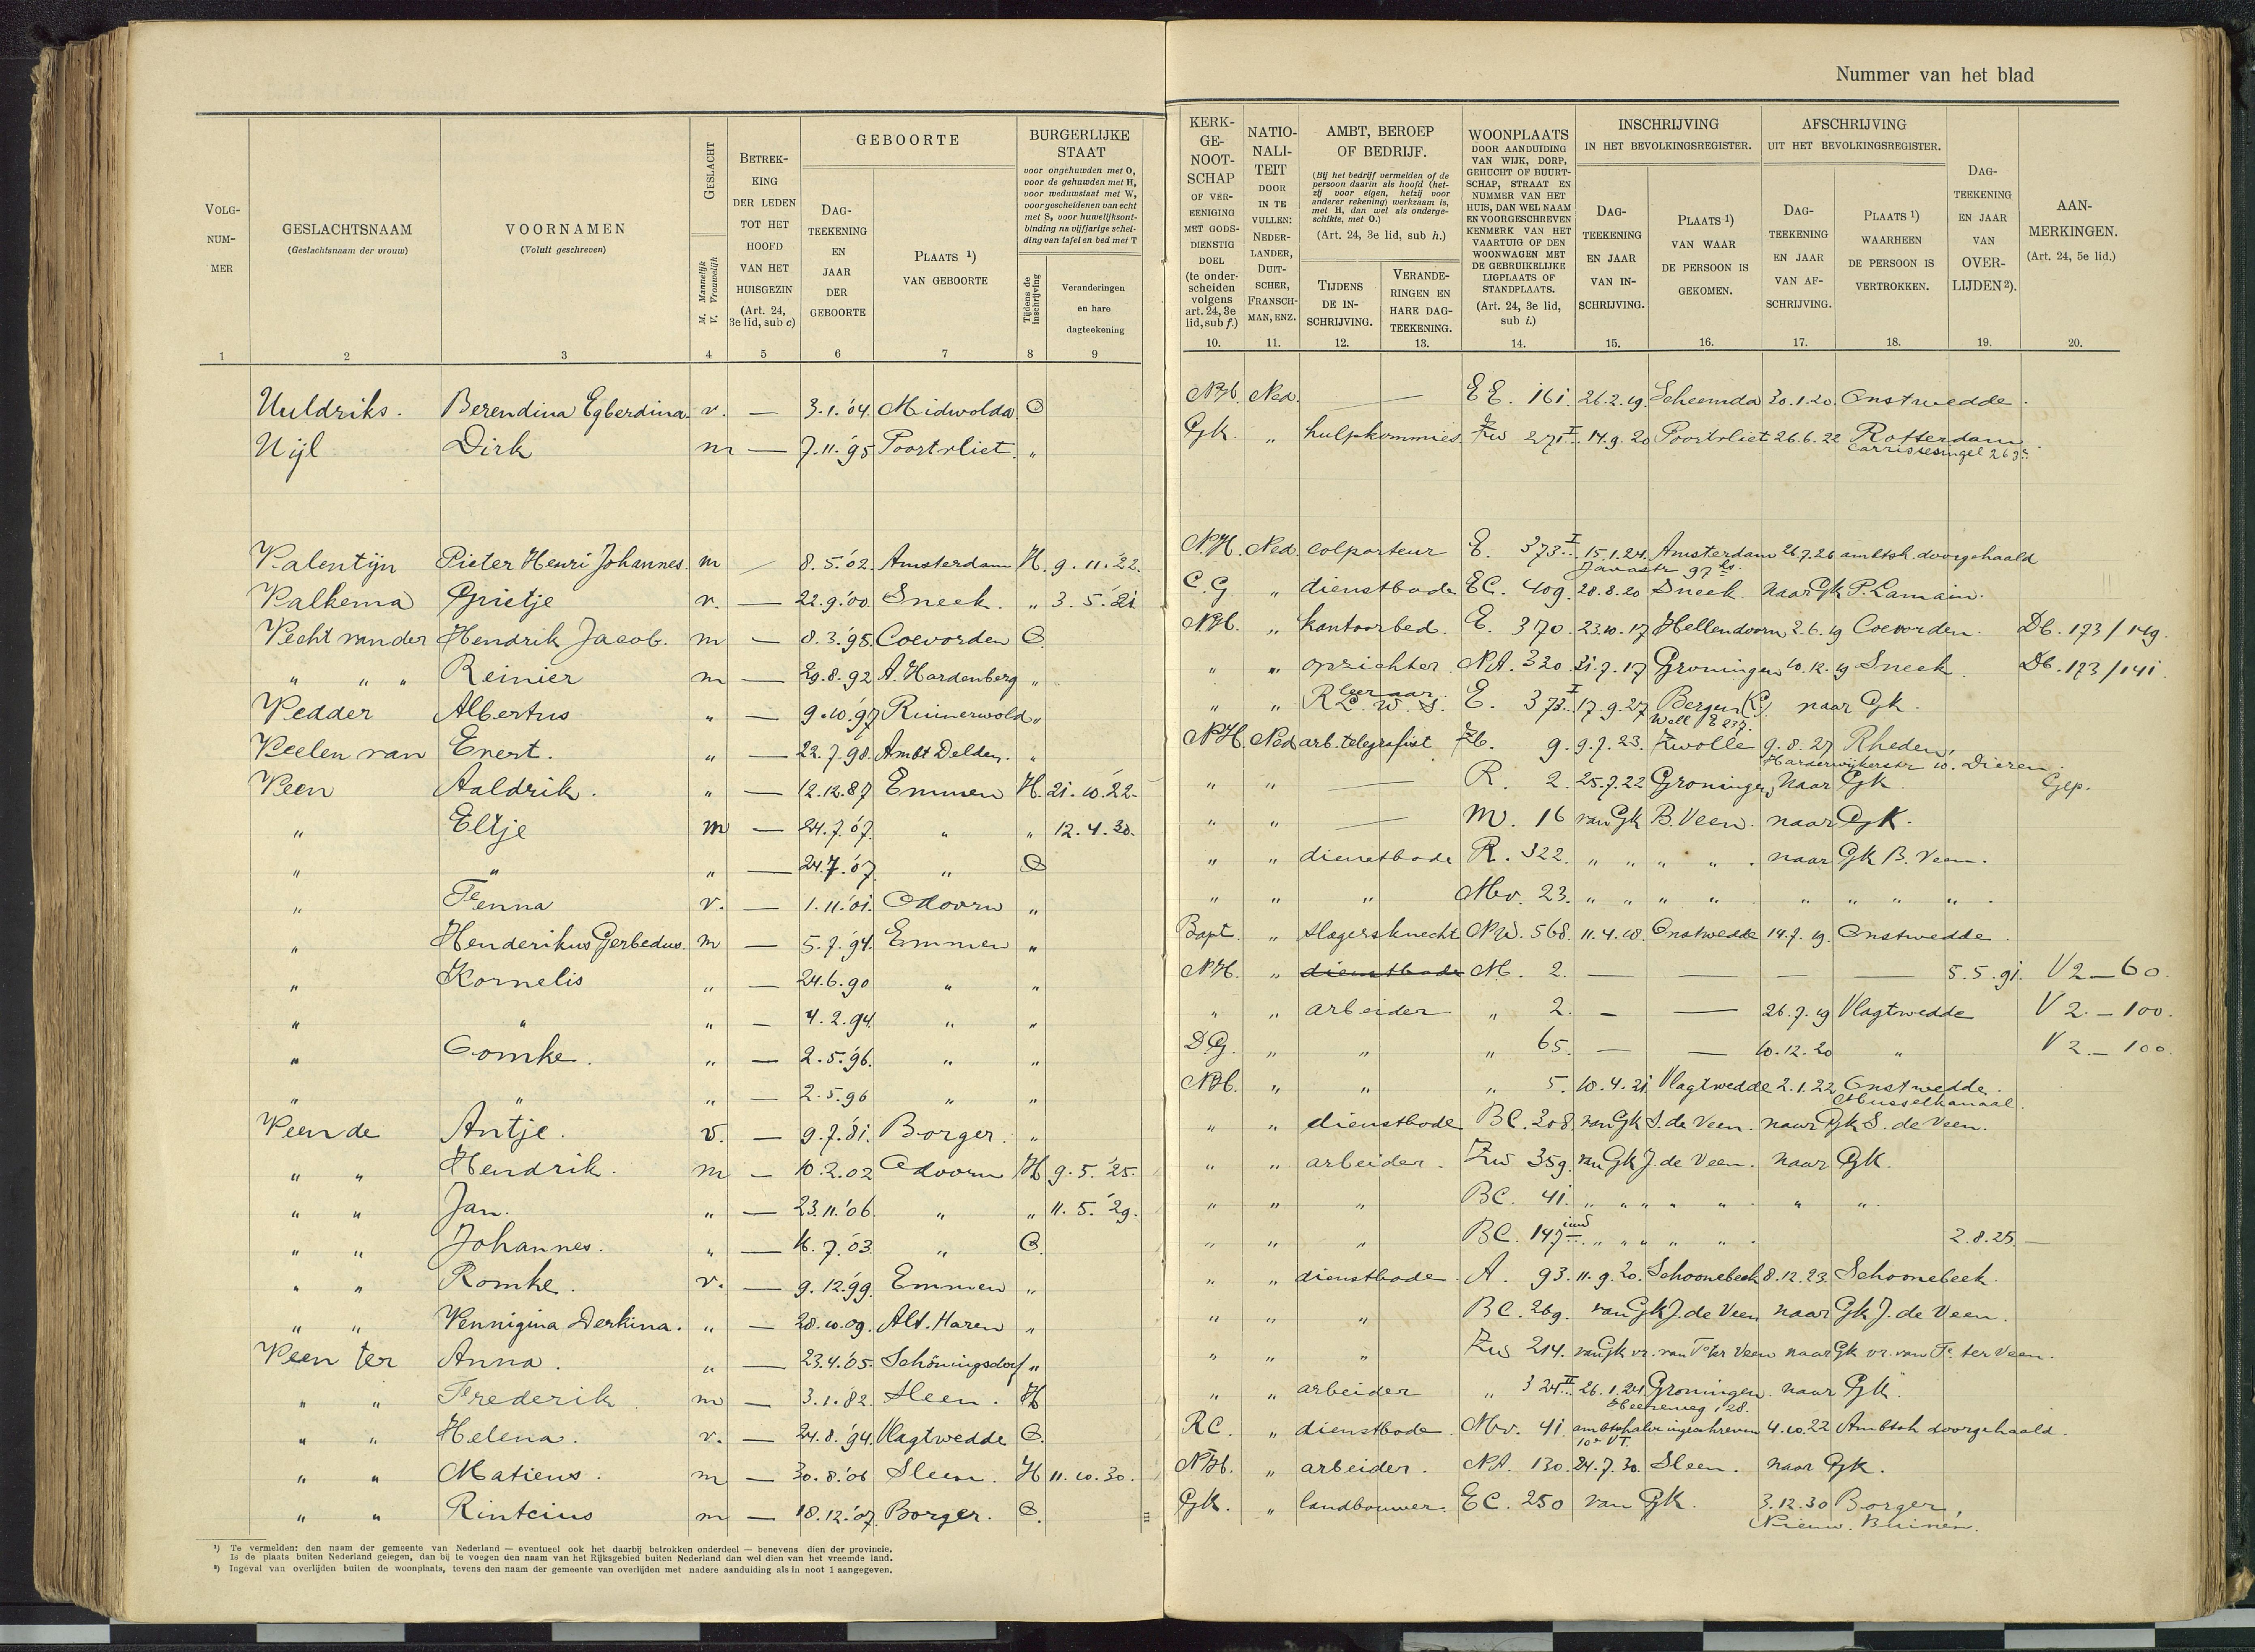 Nummer van het blad
VOLG-
NUM-
MER
GESLACHTSNAAM
(Geslachtsnaam der vrouw)
VOORNAMEN
(Voluit geschreven)
GESLACHT
M. Mannelijk
V. Vrouwelijk
BETREK-
KING
DER LEDEN
TOT HET
HOOFD
VAN HET
HUISGEZIN
(Art. 24,
3e lid, sub c)
GEBOORTE
DAG-
TEEKENING
EN
JAAR
DER
GEBOORTE
PLAATS ¹)
VAN GEBOORTE
BURGERLIJKE
STAAT
voor ongehuwden met O,
voor de gehuwden met H,
voor weduwstaat met W,
voor gescheidenen van echt
met S, voor huwelijksont-
binding na vijfjarige schei-
ding van tafel en bed met T
Tijdens de
inschrijving
Veranderingen
en hare
dagteekening
KERK-
GE-
NOOT-
SCHAP
OF VER-
EENIGING
MET GODS-
DIENSTIG
DOEL
(te onder-
scheiden
volgens
art. 24, 3e
lid, sub f.)
NATIO-
NALI-
TEIT
DOOR
IN TE
VULLEN:
NEDER-
LANDER,
DUIT-
SCHER,
FRANSCH-
MAN, ENZ.
AMBT, BEROEP
OF BEDRIJF.
(Bij het bedrijf vermelden of de
persoon daarin als hoofd (het-
zij voor eigen, hetzij voor
anderer rekening) werkzaam is,
met H, dan wel als onderge-
schikte, met O.)
(Art. 24, 3e lid, sub h.)
TIJDENS
DE IN-
SCHRIJVING.
VERANDE-
RINGEN EN
HARE DAG-
TEEKENING.
WOONPLAATS
DOOR AANDUIDING
VAN WIJK, DORP,
GEHUCHT OF BUURT-
SCHAP, STRAAT EN
NUMMER VAN HET
HUIS, DAN WEL NAAM
EN VOORGESCHREVEN
KENMERK VAN HET
VAARTUIG OF DEN
WOONWAGEN MET
DE GEBRUIKELIJKE
LIGPLAATS OF
STANDPLAATS.
(Art. 24, 3e lid,
sub i.)
INSCHRIJVING
IN HET BEVOLKINGSREGISTER.
DAG-
TEEKENING
EN JAAR
VAN IN-
SCHRIJVING.
PLAATS ¹)
VAN WAAR
DE PERSOON IS
GEKOMEN.
AFSCHRIJVING
UIT HET BEVOLKINGSREGISTER.
DAG-
TEEKENING
EN JAAR
VAN AF-
SCHRIJVING.
PLAATS ¹)
WAARHEEN
DE PERSOON IS
VERTROKKEN.
DAG-
TEEKENING
EN JAAR
VAN
OVER-
LIJDEN ²).
AAN-
MERKINGEN.
(Art. 24, 5e lid.)
1 2 3 4 5 6 7 8 9 10. 11. 12. 13. 14. 15. 16. 17. 18. 19. 20.
Uuldriks. Berendina Egberdina. v. — 3.1.'04. Midwolda O NH. Ned. — — EE. 161. 26.2.19. Scheemda 30.1.20. Onstwedde.
Uijl Dirk m — 7.11.'95 Poortvliet. " Gk. " hulpkommies. Zw 271 I 14.9.20 Poortvliet 26.6.22 Rotterdam
Valentijn Pieter Henri Johannes. m — 8.5.'02. Amsterdam H. 9.11.'22. N.H. Ned. colporteur E. 373 I 15.1.24. Amsterdam 26.7.26 ambtsh. doorgehaald
Javastr 97 hs.
Valkema Grietje v. — 22.9.'00. Sneek. " 3.5.'21 C.G. " dienstbode EC. 409. 28.8.20 Sneek. naar Gk P. Lamain.
Vecht van der Hendrik Jacob. m — 8.3.'95. Coevorden O NH. " kantoorbed. E. 370. 23.10.17 Hellendoorn 2.6.19 Coevorden. Db. 173/149.
" " " Reinier m — 29.8.92 A. Hardenberg " " " opzichter. NA. 320. 31.7.17 Groningen 10.12.19 Sneek. Db. 173/141.
Vedder Albertus " — 9.10.'97 Ruinerwold " " " leeraar E. 373 I 17.9.27 Bergen naar Gk.
Veelen van Evert. " — 22.7.98. Ambt Delden. " NH. Ned arb. telegrafist Zb. 9. 9.7.23. Zwolle 9.8.27 Rheden,
Harderwijkerstr 10. Dieren.
Veen Aaldrik. " — 12.12.87 Emmen H. 21.10.'22. " " — R. 2. 25.7.22 Groningen, naar Gk.
" Eltje m — 24.7.'07. " " 12.4.30. " " — M. 16 van Gk B. Veen. naar Gk.
" " " — 24.7.'07. " O " " dienstbode R. 322. " " " " . naar Gk B. Veen.
" Fenna v. — 1.11.'01. Odoorn " " " " Mw. 23. " " " " . " " " " .
" Henderikus Gerbedus. m — 5.7.'94. Emmen " Bapt. " slagersknecht NW. 568. 11.4.18. Onstwedde 14.7.19. Onstwedde.
" Kornelis " — 24.6.90 " " NH. " dienstbode M. 2. — — — — 5.5.91. V 2 — 60.
" " " — 4.2.94. " " " " arbeider " 2. — — 26.7.19 Vlagtwedde V 2. — 100.
" Tomke. " — 2.5.'96. " " D.G. " " " 65. — — 10.12.20 " V 2. — 100.
" " " — 2.5.96 " " NH. " " " 5. 10.4.21. Vlagtwedde 2.1.22 Onstwedde.
Musselkanaal.
Veen de Antje. v. — 9.7.'81. Borger. " " " dienstbode BC. 308. van Gk S. de Veen. naar Gk S. de Veen.
" " Hendrik. m — 10.2.02 Odoorn H 9.5.'25. " " arbeider. Zw 359. van Gk J. de Veen. naar Gk.
" " Jan. " — 23.11.'06. " " 11.5.'29. " " " BC. 41. " " " " " . " ".
" " Johannes. " — 16.7.'03. " O. " " " BC. 147 " " " " " . 2.8.25. —
" " Romke. v. — 9.12.'99. Emmen " " " dienstbode. A. 93. 11.9.20. Schoonebeek 8.12.23. Schoonebeek.
" " Vennigina Derkina. " — 28.10.09. Alt. Haren " " " " BC. 269. van Gk J. de Veen naar Gk J. de Veen.
Veen ter Anna. " — 23.4.'05. Schöningsdorf " " " " Zw 214. van Gk vr. van Fe. ter Veen naar Gk vr. van Fe. ter Veen.
" " Frederik. m — 3.1.82. Sleen. H " " arbeider " 324 II 26.1.24. Groningen. naar Gk.
" " Helena. v. — 24.8.'94. Vlagtwedde O. RC. " dienstbode. Mw. 41. ambtshalve ingeschreven 4.10.22 Ambtsh doorgehaald.
10e VT.
" " Matiens. m — 30.8.'06 Sleen. H 11.10.30. NH. " arbeider. NA. 130. 24.7.30. Sleen. naar Gk.
" " Rinteius m — 18.12.'07. Borger. O. Gk. " landbouwer. EC. 250 van Gk. 3.12.30 Borger,
Nieuw. Buinen.
¹) Te vermelden: den naam der gemeente van Nederland — eventueel ook het daarbij betrokken onderdeel — benevens dien der provincie.
Is de plaats buiten Nederland gelegen, dan bij te voegen den naam van het Rijksgebied buiten Nederland dan wel dien van het vreemde land.
²) Ingeval van overlijden buiten de woonplaats, tevens den naam der gemeente van overlijden met nadere aanduiding als in noot 1 aangegeven.